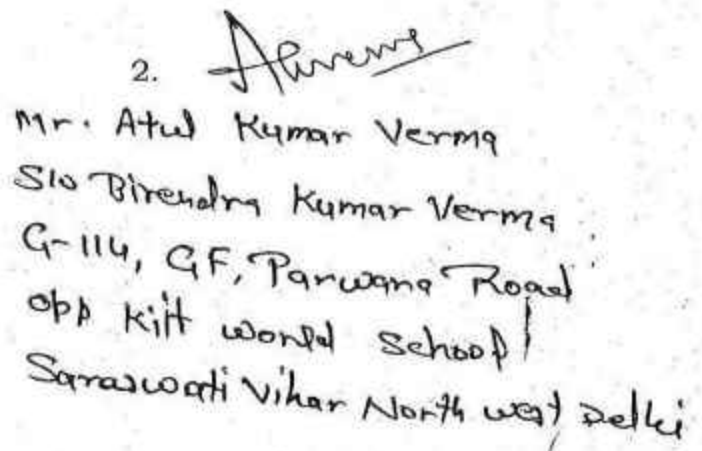 2.
Mr. Atul Kumar Verma
S/o Birendra Kumar Verma
G-114, GF, Parwana Road
opp Kiit world school
Saraswati Vihar North west Delhi